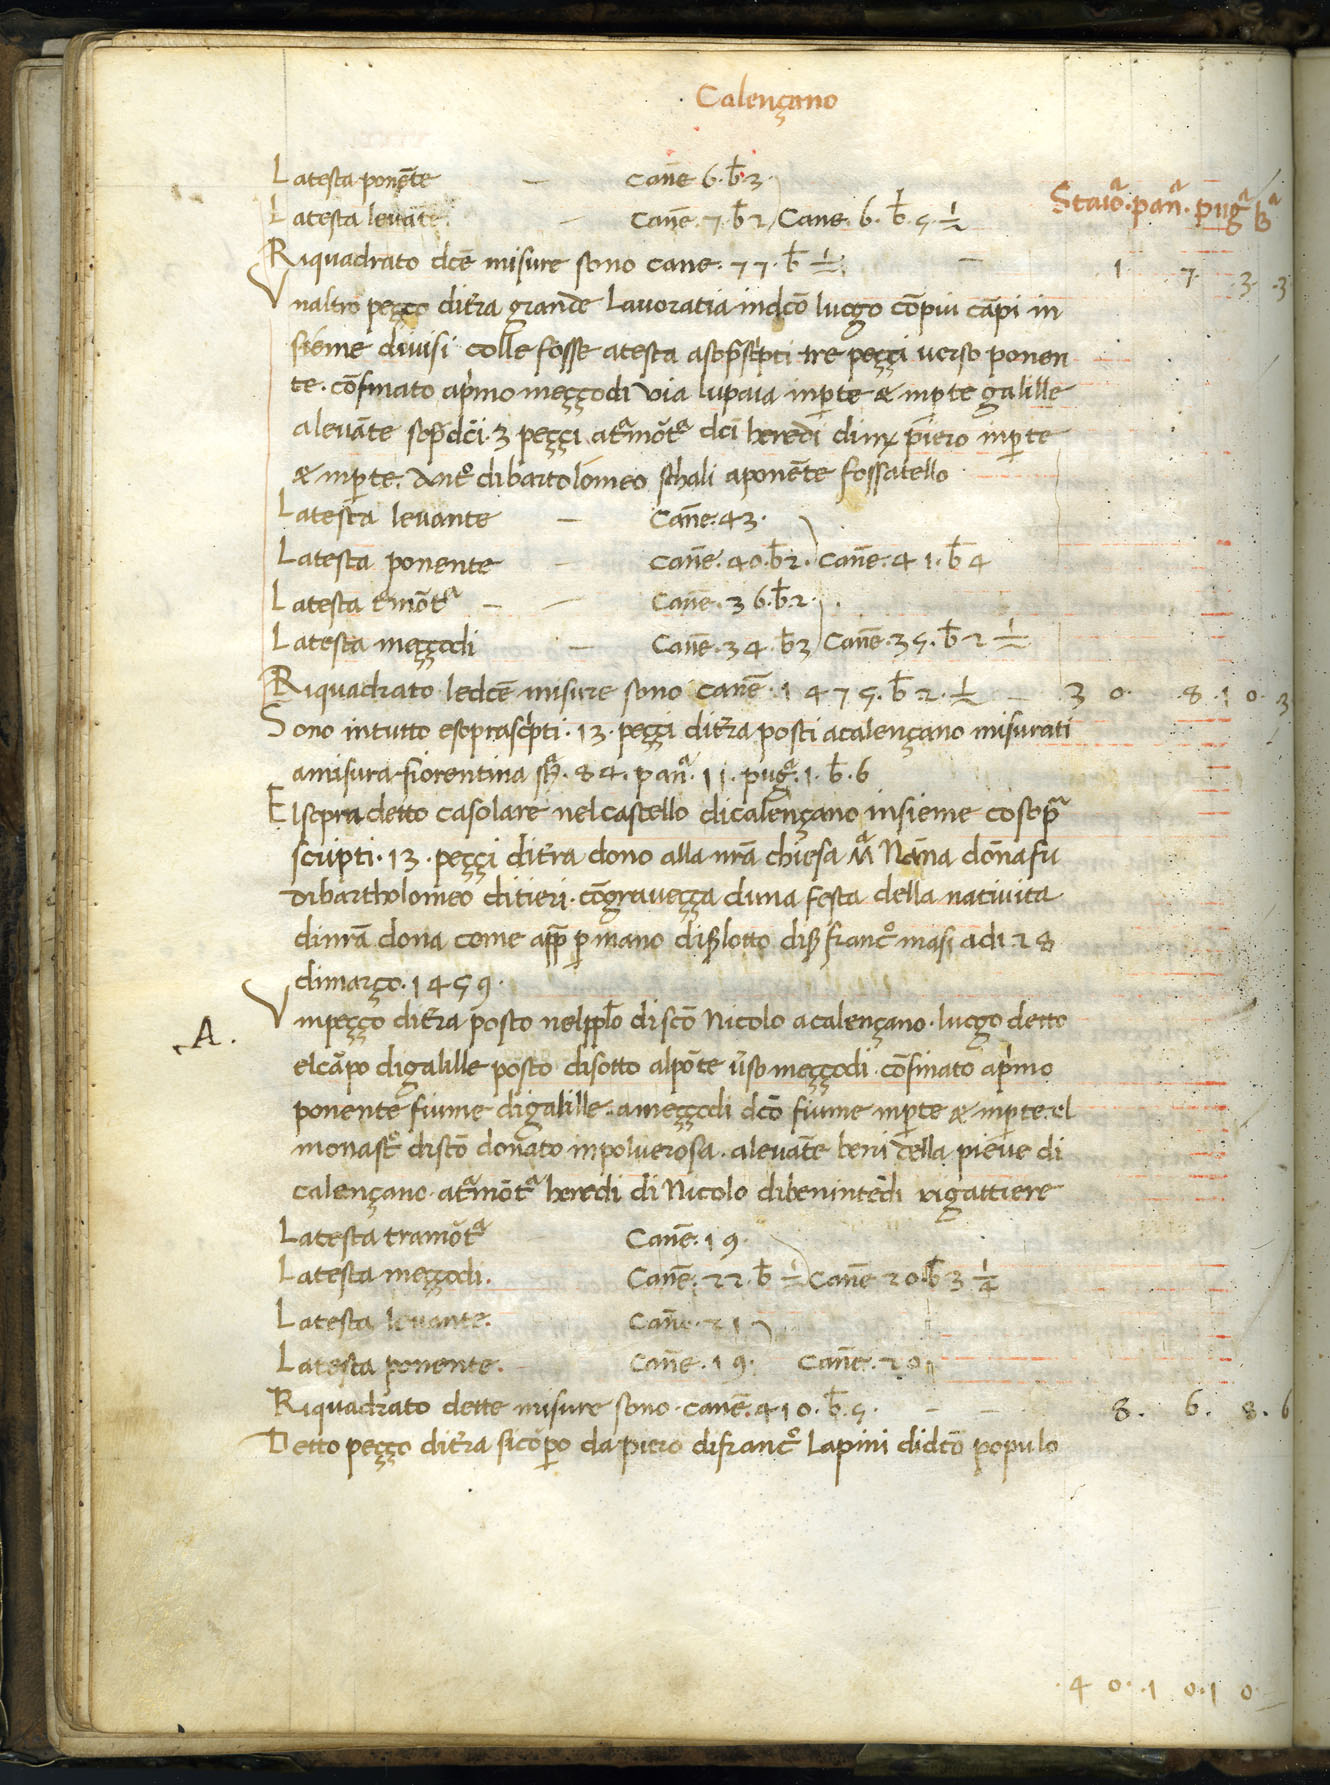 Calençano
Staioᵃ. panᵃ. pugᵃ bᵃ
Latesta ponēte — Canē 6. b̄. 3.
Latesta levāte — Canē. 7. b̄ 2 Cane. 6. b̄. 5. ½
Riquadrato dcē misure sono cane. 77. b̄ ½. — 1. 7. 3. 3.
Vnaltro peçço ditr̄a grande Lavoratia indcō luogo cōpiu cāpi in
sieme divisi colle fosse atesta asop̄sc̄pti tre peççi verso ponen
te. cōfinato ap̄imo meççodi via lupaia inp̄te & inp̄te galille
alevāte sop̄dc̄i. 3 peççi atᵃmōtᵃ dc̄i heredi di piero inp̄te
& inp̄te. Antº. dibartolomeo schali aponēte fossatello
Latesta levante — Canē. 43.
Latesta ponente — canē. 40. b̄ 2. Canē. 41. b̄ 4
Latesta tmōtᵃ — — Canē. 36. b̄. 2.
Latesta meççodi — Canē. 34. b̄ 3 Canē. 35. b̄ 2 ½
Riquadrato ledcē misure sono canē. 1475. b̄ 2. ½ — 30. 8. 10. 3
Sono intutto esoprasc̄pti. 13. peççi ditr̄a posti acalençano misurati
amisura fiorentina st̄ᵃ. 84. panᵃ. 11. pugᵃ. 1. b̄. 6
Elsopra detto casolare nelcastello dicalençano insieme cosop̄ᵃ
scripti. 13. peççi ditr̄a dono alla nrā chiesa Mᵃ Nāna dōnafu
dibartholomeo ditieri. cōgraveçça duna festa della nativita
dinrā dona come app̄ p̄ mano diß lotto diß francº masi adi 28
dimarço. 1459.
A.
Vnpeçço ditr̄a posto nelpp̄lo discō Nicolo acalençano. luogo detto
elcāpo digalille posto disotto alpōte v̄so meççodi. cōfinato ap̄imo
ponente fiume digalille. ameççodi dcō fiume inp̄te & inp̄te. el
monastº discō donato inpolverosa. alevāte beni della pieve di
calençano. atᵃmōtᵃ heredi di Nicolo dibenintēdi rigattiere
Latesta tramōtᵃ Canē. 19.
Latesta meççodi. Canē. 22. b̄ ½ Canē 20. b̄ 3 ¼
Latesta levante. Canē. 21
Latesta ponente. — Canē. 19. Canē. 20
Riquadrato dette misure sono. canē. 410. b̄. 5. — — 8. 6. 8. 6
Detto peçço ditr̄a sicōp̄o da piero difrancº Lapini didcō populo
. 40. . 10. 10.